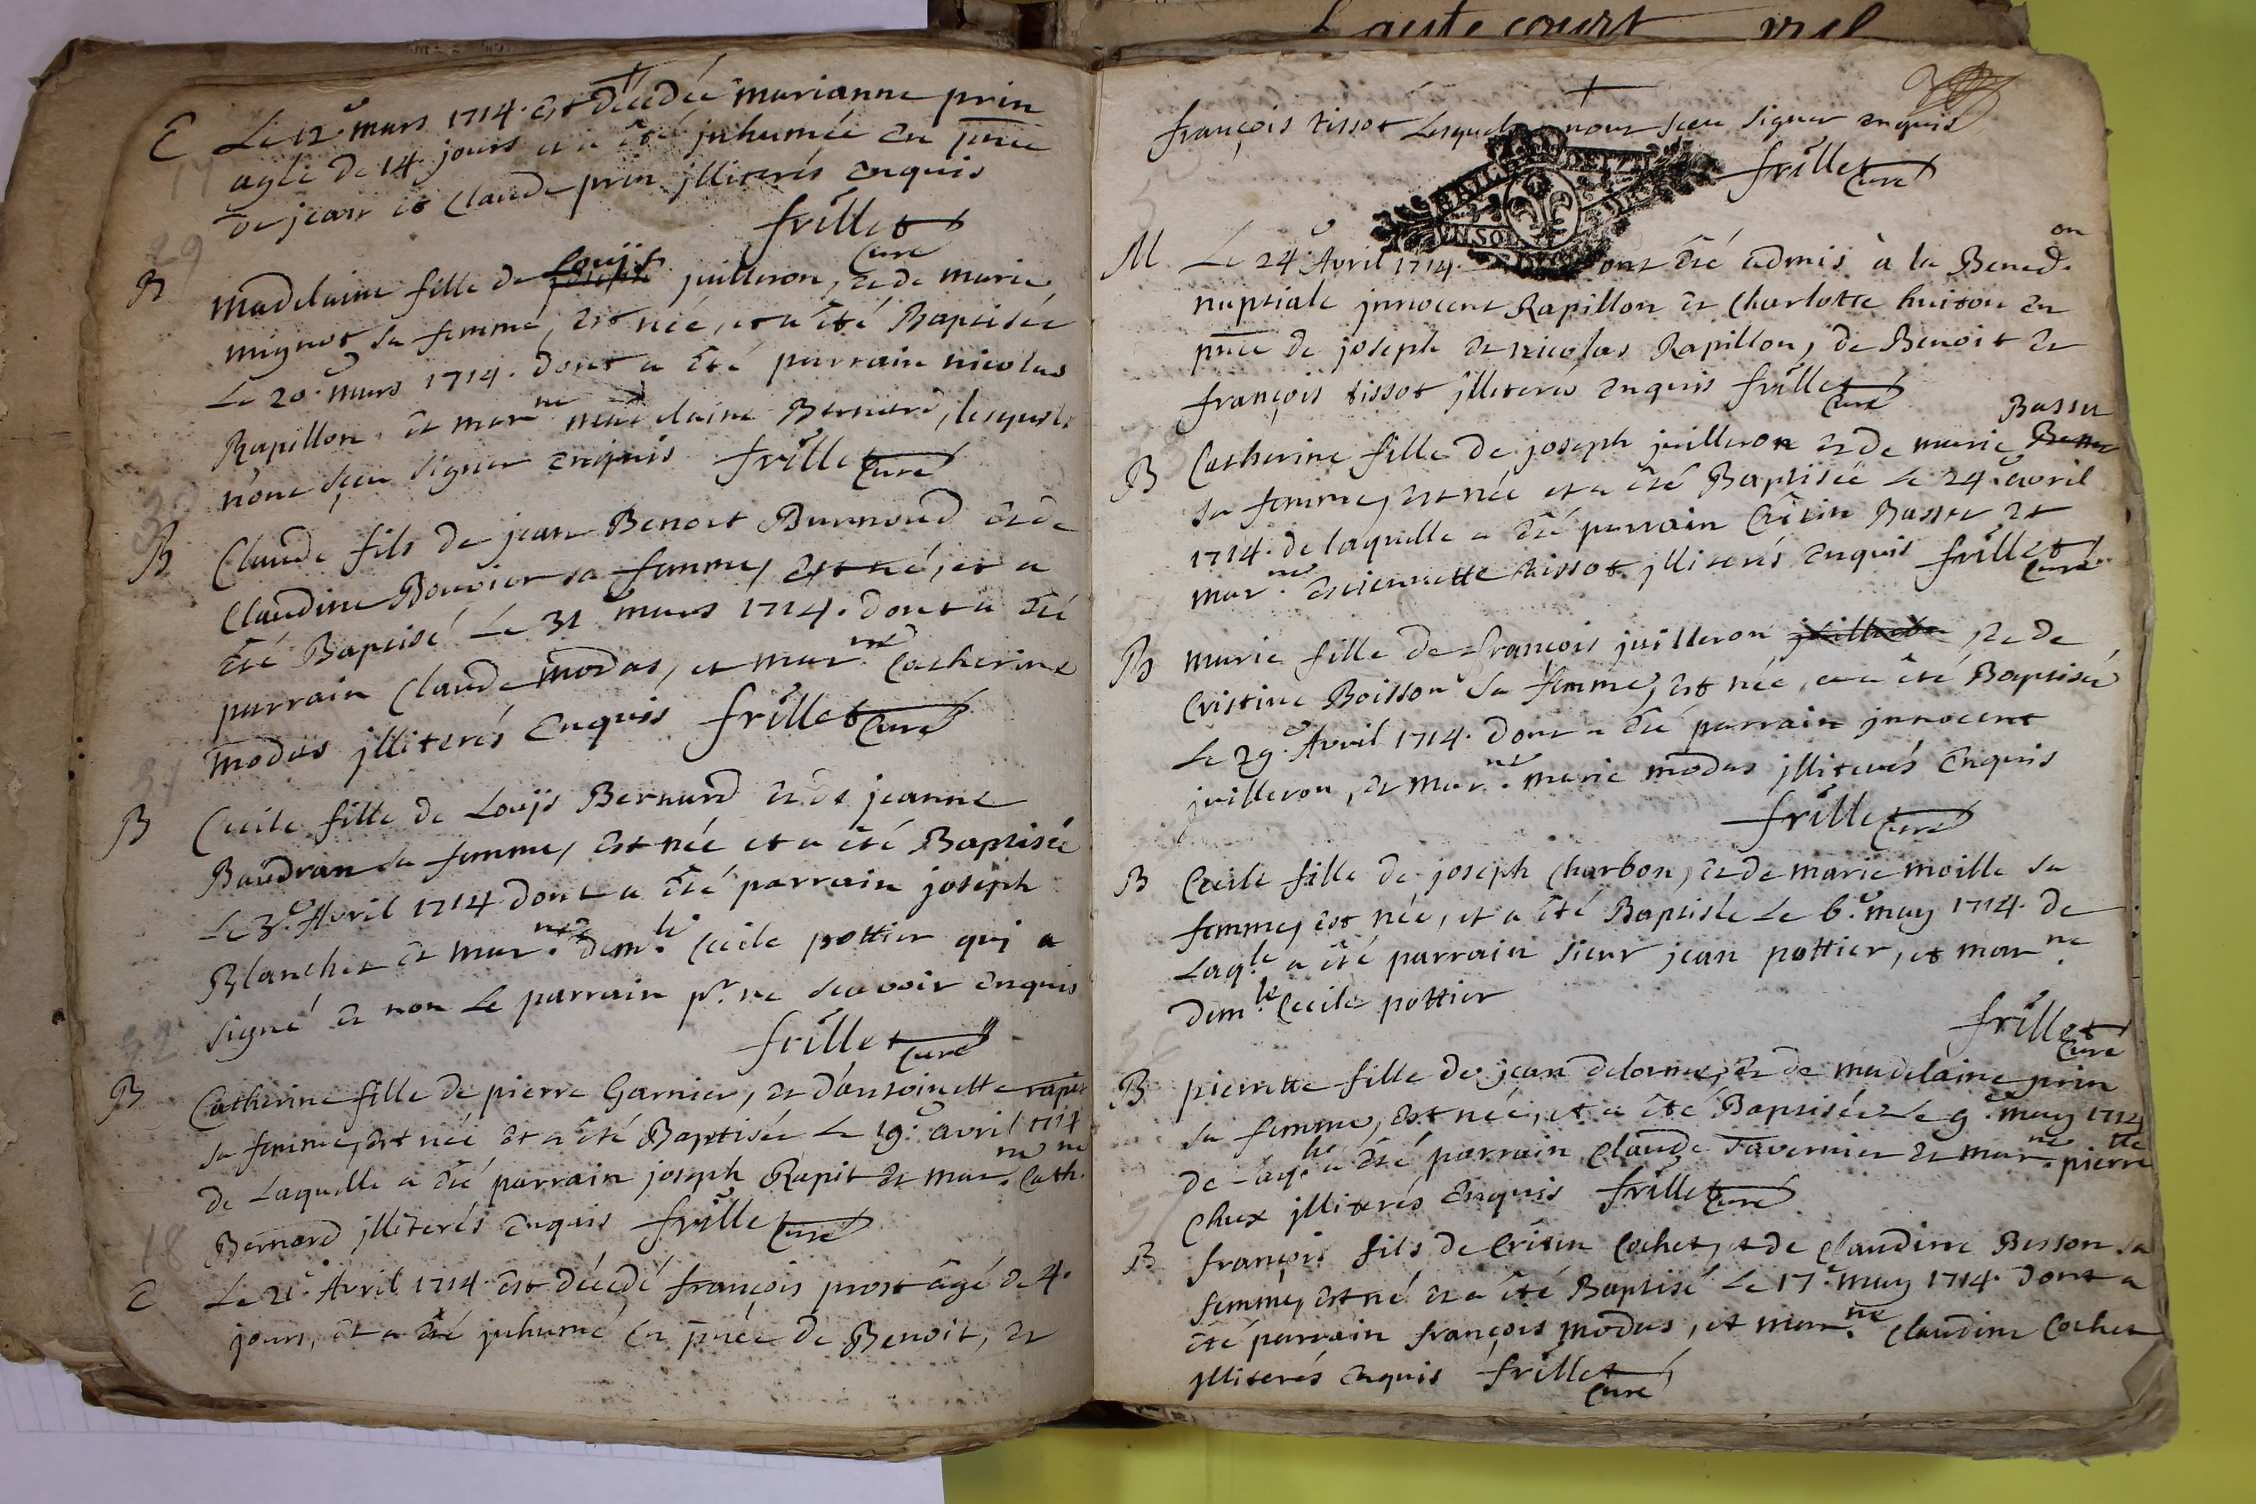 Hautecourt
C Le 12.e mars 1714. est décédée marianne prin
agée de 14 jours et a été jnhumée en pnce
de jean et Claude prin jlliterés enquis
frillet curé
29
B Madelaine fille de Louijs joseph juilleron, et de marie
mignot sa femme, est née, et a été Baptisée
Le 20.e mars 1714. dont a été parrain nicolas
Rapillon. et mar.ne madelaine Bernard, lesquels
n'ont sçeu signer enquis frillet curé
30
B Claude fils de jean Benoit Burnoud et de
Claudine Bouvier sa femme, est né, et a
été Baptisé Le 31 mars 1714. dont a été
parrain Claude modas, et mar.ne Catherine
modas jlliterés enquis frillet curé
31
B Cecile fille de Louijs Bernard et de jeanne
Baudran sa femme, est née et a été Baptisée
Le 3.e Avril 1714 dont a été parrain joseph
Blanchet et mar.ne dem.le Cecile pottier quj a
signé et non Le parrain p.r ne scavoir enquis
frillet curé
32
B Catherine fille de pierre Garnier, et d'antoinette rapit
sa femme, est née et a été Baptisée Le 19.e avril 1714
de Laquelle a été parrain joseph Rapit et mar.ne Cath.ne
Bernard jlliterés enquis frillet curé
18
C Le 21.e Avril 1714 est décédé françois prost âgé de 4.
jours, et a été jnhumé en pnce de Benoit, et
françois tissot Lesquels nont sceu signer enquis
frillet curé
M Le 24.e Avril 1714. ont été admis à la Bened.on
nuptiale jnnocent Rapillon et Charlotte huiton en
pnce de joseph et nicolas Rapillon, de Benoit et
françois tissot jlliterés enquis frillet curé
B Catherine fille de joseph juilleron et de marie Bassu
sa femme, est née et a été Baptisée Le 24.e avril
1714. de laquelle a été parrain Cristin Bassu et
mar.ne etiennette tissot jlliterés enquis frillet curé
B marie fille de françois juilleron, et de
Cristine Boisson sa femme, est née, et a été Baptisée
Le 29.e Avril 1714. dont a été parrain jnnocent
juilleron, et mar.ne marie modas jlliterés enquis
frillet curé
B Cecile fille de joseph Charbon, et de marie moille sa
femme, est née, et a été Baptisée Le 6.e may 1714. de
Laq.le a été parrain sieur jean pottier, et mar.ne
dem.le Cecile pottier
frillet curé
B pierrette fille de jean delorme, et de madelaine prin
sa femme, est née, et a été Baptisée Le 9.e may 1714
de Laq.le a été parrain Claude Tavernier et mar.ne pierre.tte
Chux jlliterés enquis frillet curé
B françois fils de Cristin Cochet, et de Claudine Besson sa
femme, est né et a été Baptisé Le 17.e may 1714. dont a
été parrain françois modas, et mar.ne Claudine Cochet
jlliterés enquis frillet curé